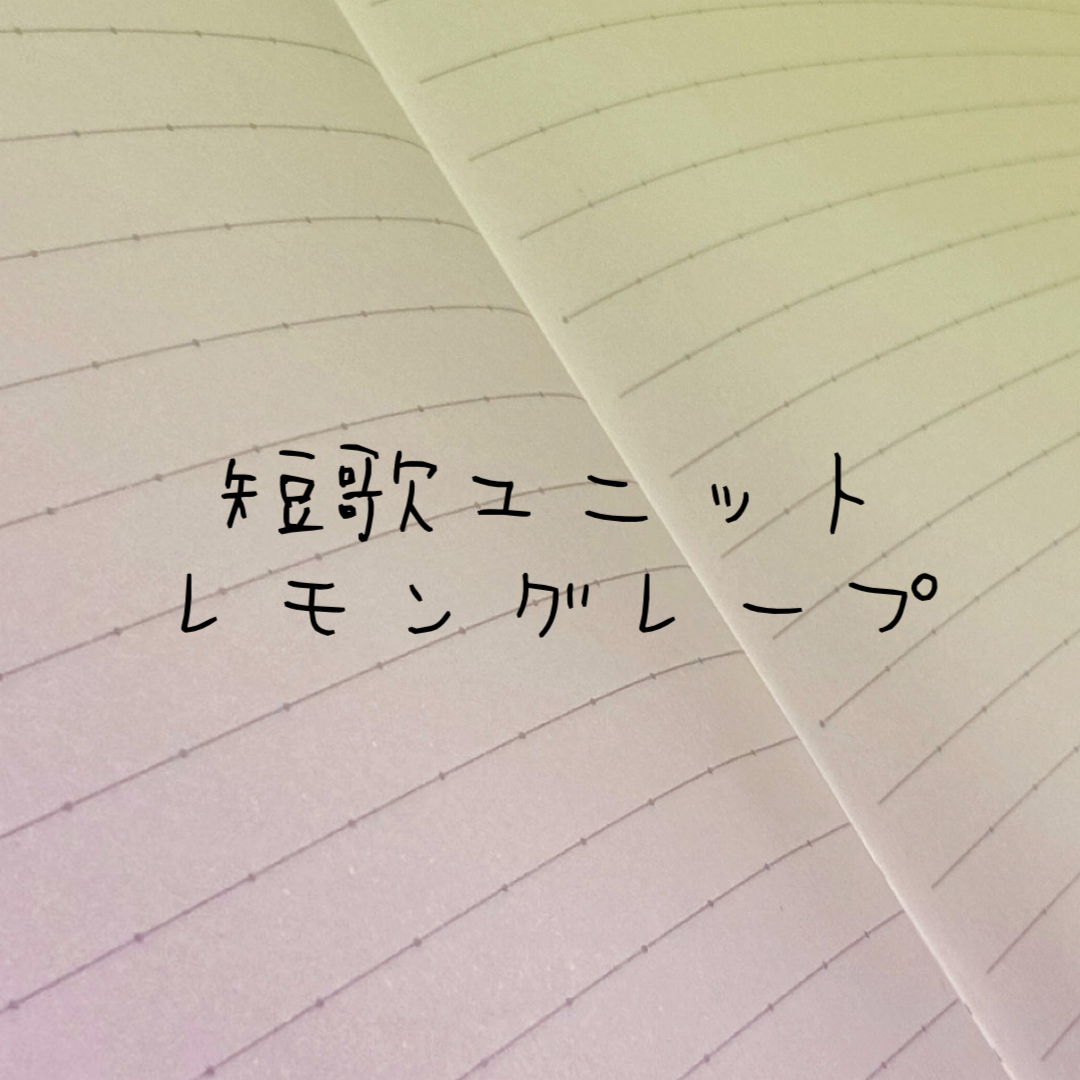 短歌ユニット
レモングレープ